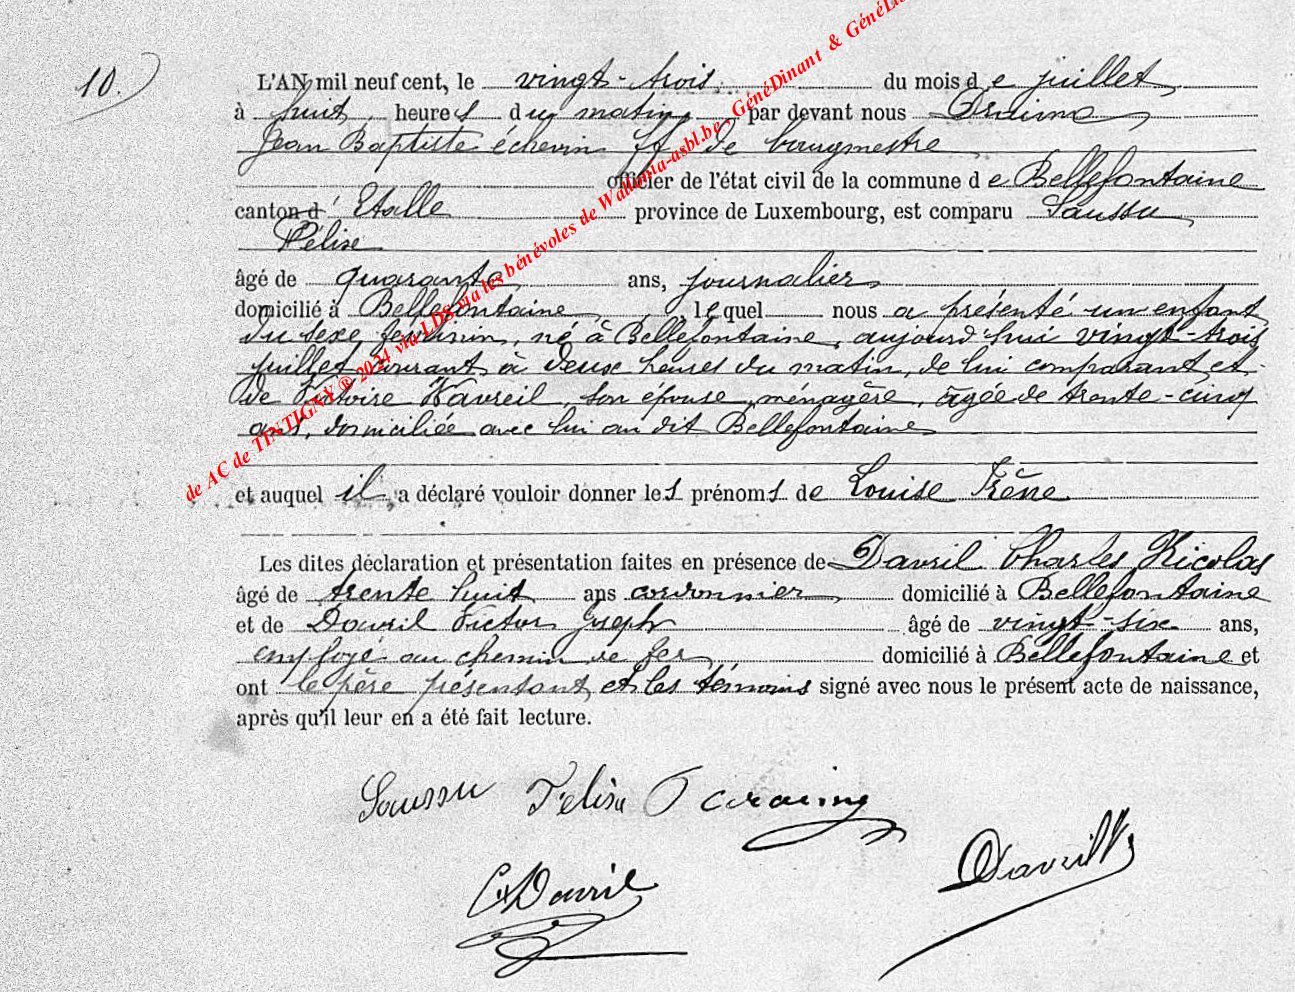 10.
L'AN mil neuf cent, le vingt-trois du mois de juillet
à huit heures du matin, par devant nous
Jean Baptiste échevin ff de bourgmestre
officier de l'état civil de la commune de Bellefontaine
canton d'Etalle province de Luxembourg, est comparu Saussu
Félise
âgé de quarante ans, journalier
domicilié à Bellefontaine, lequel nous a présenté un enfant
du sexe féminin, né à Bellefontaine, aujourd'hui vingt-trois
juillet courant à deux heures du matin, de lui comparant et
de Victoire son épouse, ménagère, âgée de trente-cinq
ans, domiciliée avec lui au dit Bellefontaine
et auquel il a déclaré vouloir donner les prénoms de Louise Irène
Les dites déclaration et présentation faites en présence de Davril Charles Nicolas
âgé de trente huit ans cordonnier, domicilié à Bellefontaine
et de Davril Victor Joseph âgé de vingt-six ans,
employé au chemin de fer, domicilié à Bellefontaine et
ont le père présentant et les témoins signé avec nous le présent acte de naissance,
après qu'il leur en a été fait lecture.
Saussu Félise
C Davril
Davril V
de AC de TINTIGNY® 2024 via LDS via les bénévoles de Wallonia-asbl.be, GénéDinant & GénéLi